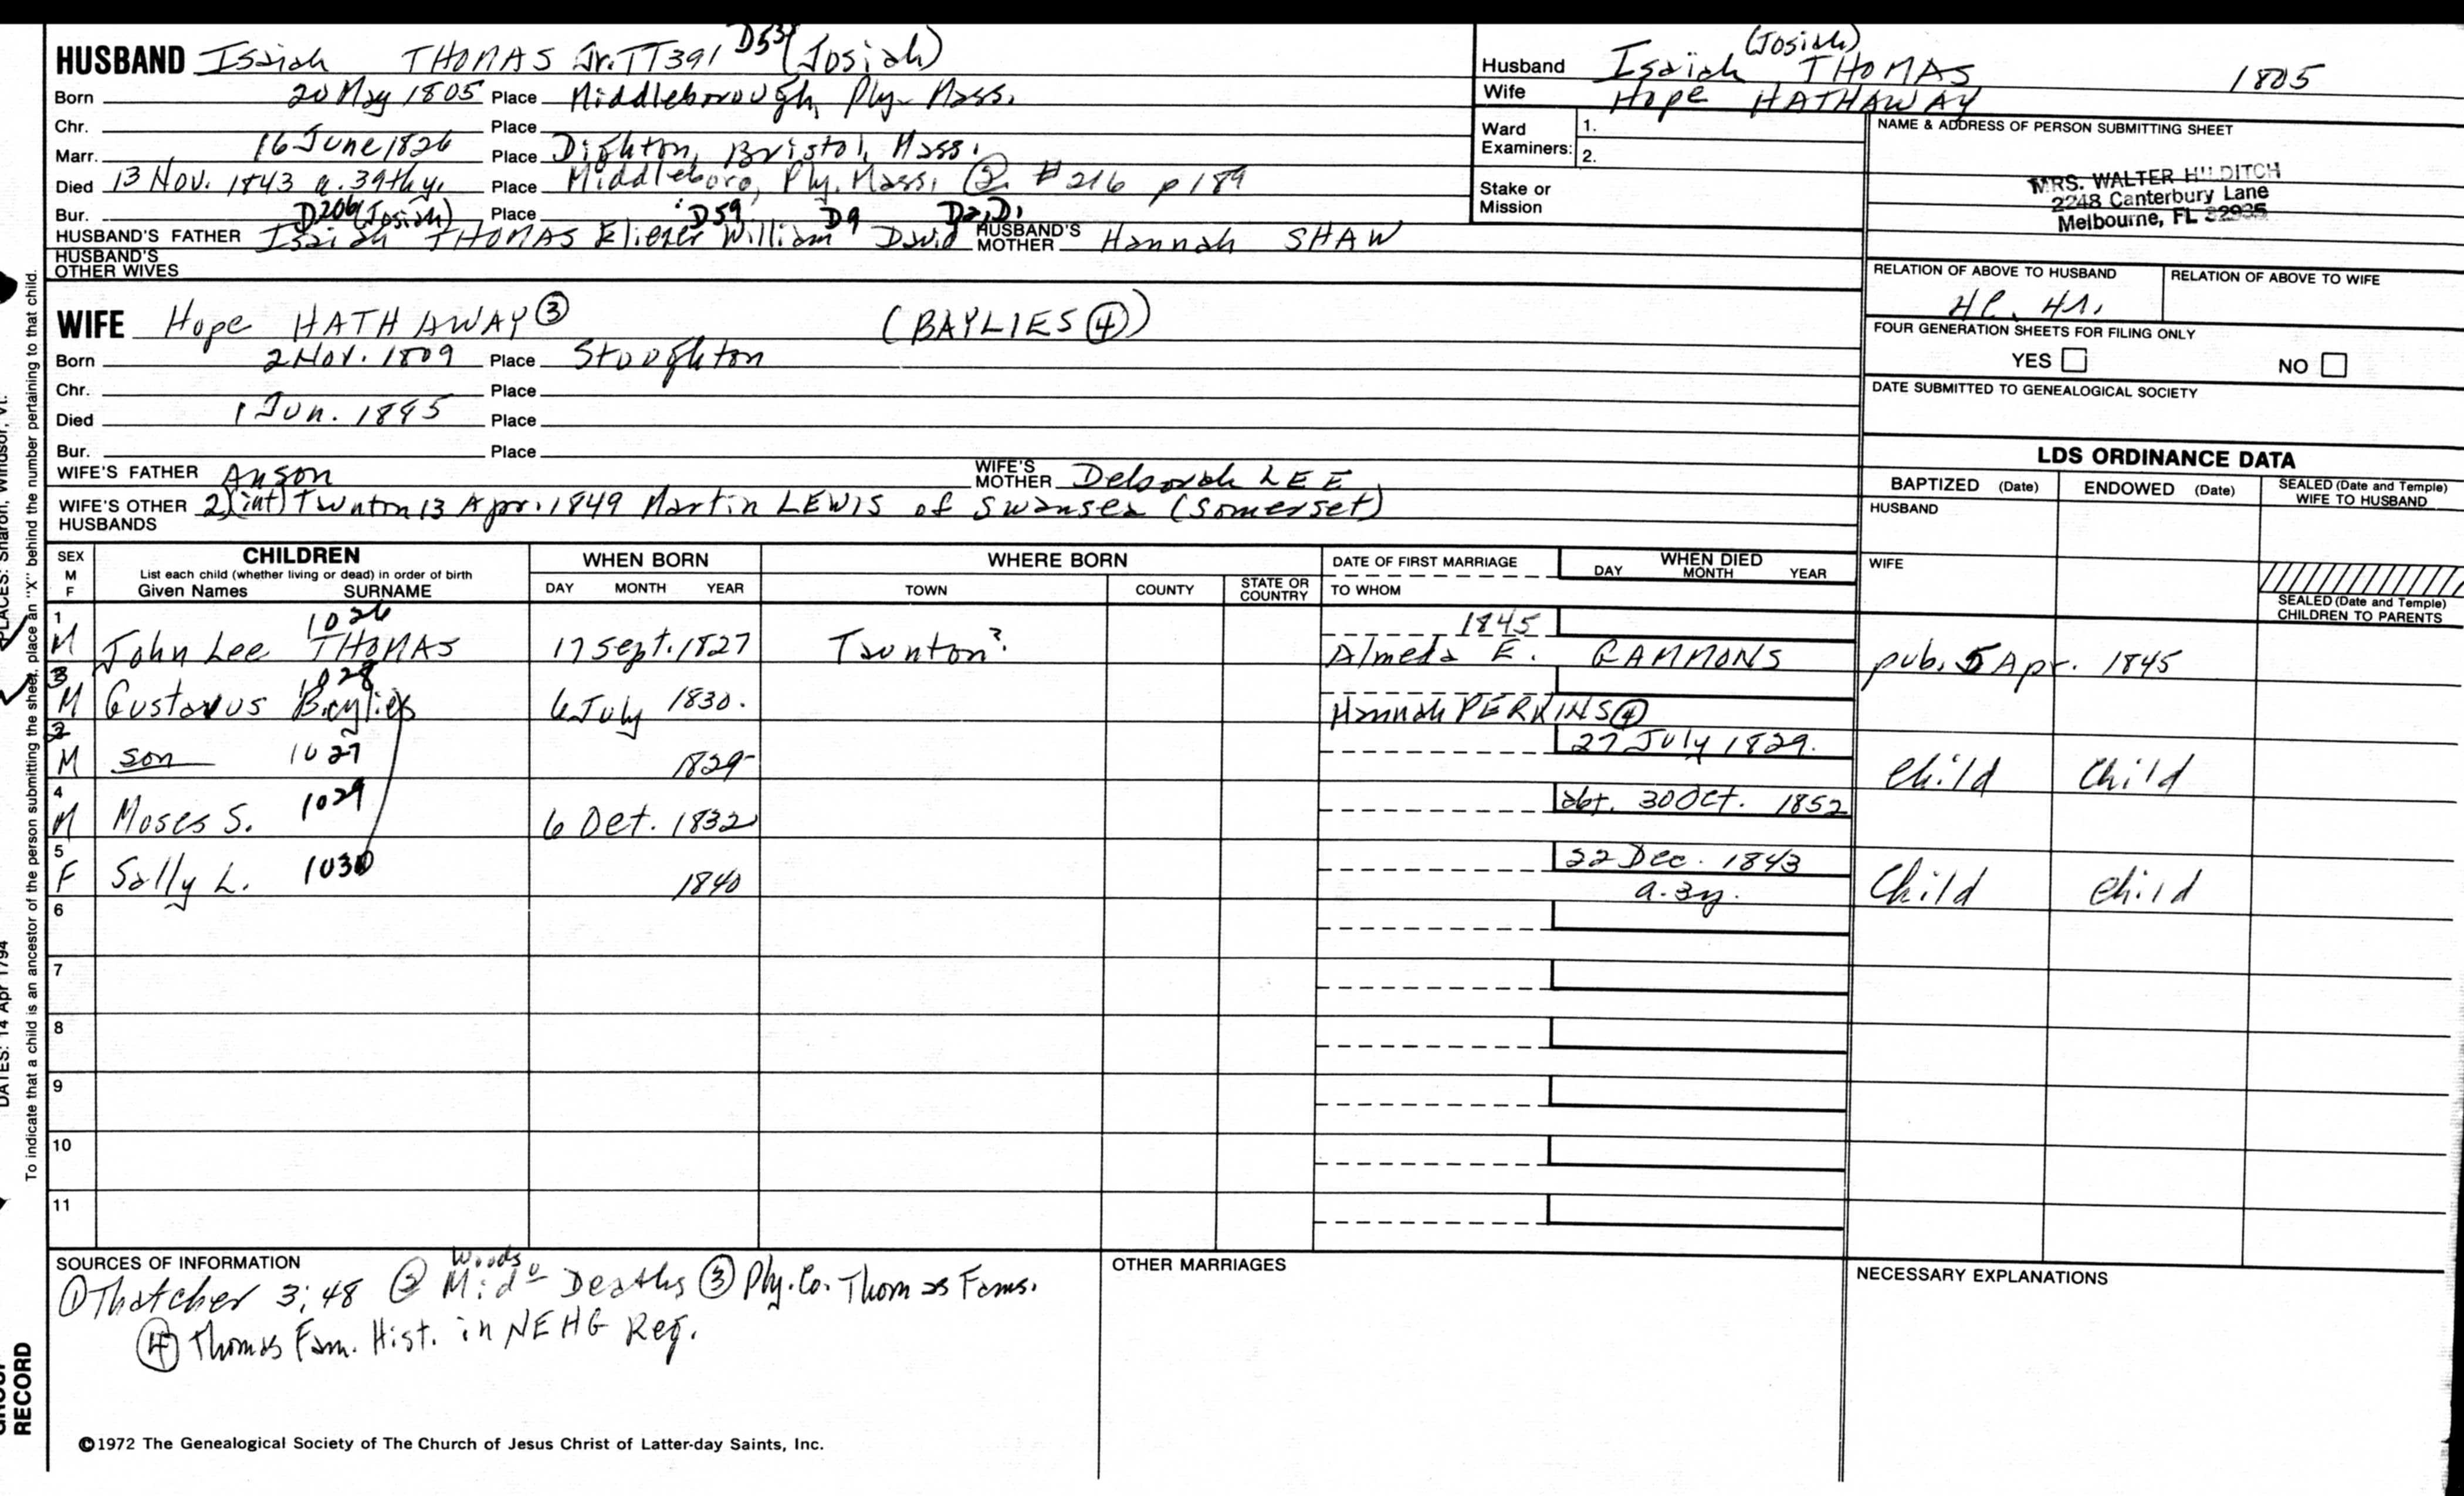 HUSBAND Isaiah THOMAS Jr. TT391 D53 (Josiah)
Born 20 May 1805 Place Middleborough, Ply. Mass.
Chr. Place
Marr. 16 June 1826 Place Dighton, Bristol, Mass.
Died 13 Nov. 1843 a. 39th y. Place Middleboro, Ply. Mass. ② #216 p 189
Bur. Place
D206 (Josiah) D59 D9 D2, D1
HUSBAND'S FATHER Isaiah THOMAS Eliezer William David HUSBAND'S MOTHER Hannah SHAW
HUSBAND'S OTHER WIVES
Husband Isaiah (Josiah) THOMAS 1805
Wife Hope HATHAWAY
Ward Examiners: 1.
2.
Stake or Mission
NAME & ADDRESS OF PERSON SUBMITTING SHEET
MRS. WALTER HILDITCH
2248 Canterbury Lane
Melbourne, FL 32935
RELATION OF ABOVE TO HUSBAND RELATION OF ABOVE TO WIFE
FOUR GENERATION SHEETS FOR FILING ONLY
YES NO
DATE SUBMITTED TO GENEALOGICAL SOCIETY
WIFE Hope HATHAWAY ③ (BAYLIES ④)
Born 2 Nov. 1809 Place Stoughton
Chr. Place
Died 1 Jun. 1895 Place
Bur. Place
WIFE'S FATHER Anson WIFE'S MOTHER Deborah LEE
WIFE'S OTHER HUSBANDS 2) (int) Taunton 13 Apr. 1849 Martin LEWIS of Swansea (Somerset)
LDS ORDINANCE DATA
BAPTIZED (Date) ENDOWED (Date) SEALED (Date and Temple) WIFE TO HUSBAND
HUSBAND
WIFE
SEALED (Date and Temple) CHILDREN TO PARENTS
SEX M F
CHILDREN
List each child (whether living or dead) in order of birth
Given Names SURNAME
WHEN BORN
DAY MONTH YEAR
WHERE BORN
TOWN COUNTY STATE OR COUNTRY
DATE OF FIRST MARRIAGE
TO WHOM
WHEN DIED
DAY MONTH YEAR
1 M John Lee THOMAS 1026 17 Sept. 1827 Taunton? 1845 Almeda E. GAMMONS pub. 5 Apr. 1845
3 M Gustavus Baylies 1028 6 July 1830. Hannah PERKINS ④
2 M son 1027 1829 27 July 1829. Child Child
4 M Moses S. 1029 6 Oct. 1832 abt. 30 Oct. 1852
5 F Sally L. 1030 1840 22 Dec. 1843 a. 3y. Child Child
6
7
8
9
10
11
SOURCES OF INFORMATION
① Thatcher 3; 48 ② Woods Mid. Deaths ③ Ply. Co. Thomas Fams.
④ Thomas Fam. Hist. in NEHG Reg.
OTHER MARRIAGES
NECESSARY EXPLANATIONS
©1972 The Genealogical Society of The Church of Jesus Christ of Latter-day Saints, Inc.
PLACES: Sharon, Windsor, Vt.
To indicate that a child is an ancestor of the person submitting the sheet, place an "X" behind the number pertaining to that child.
DATES: 14 Apr 1794
GROUP RECORD